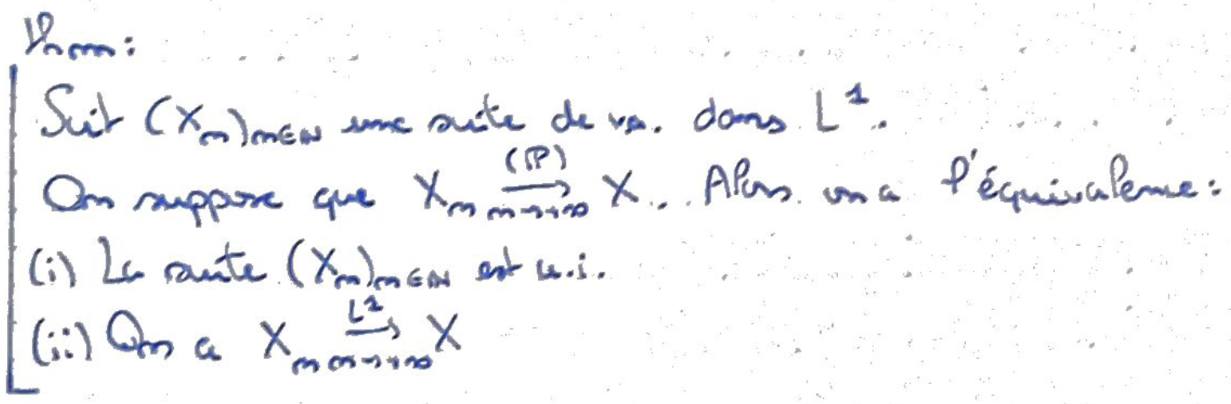 Thm :
Soit (X_n)_{n∈ℕ} une suite de va. dans L^1.
On suppose que X_n \xrightarrow[n→+∞]{(ℙ)} X. Alors on a l'équivalence :
(i) La suite (X_n)_{n∈ℕ} est u.i.
(ii) On a X_n \xrightarrow[n→+∞]{L^1} X